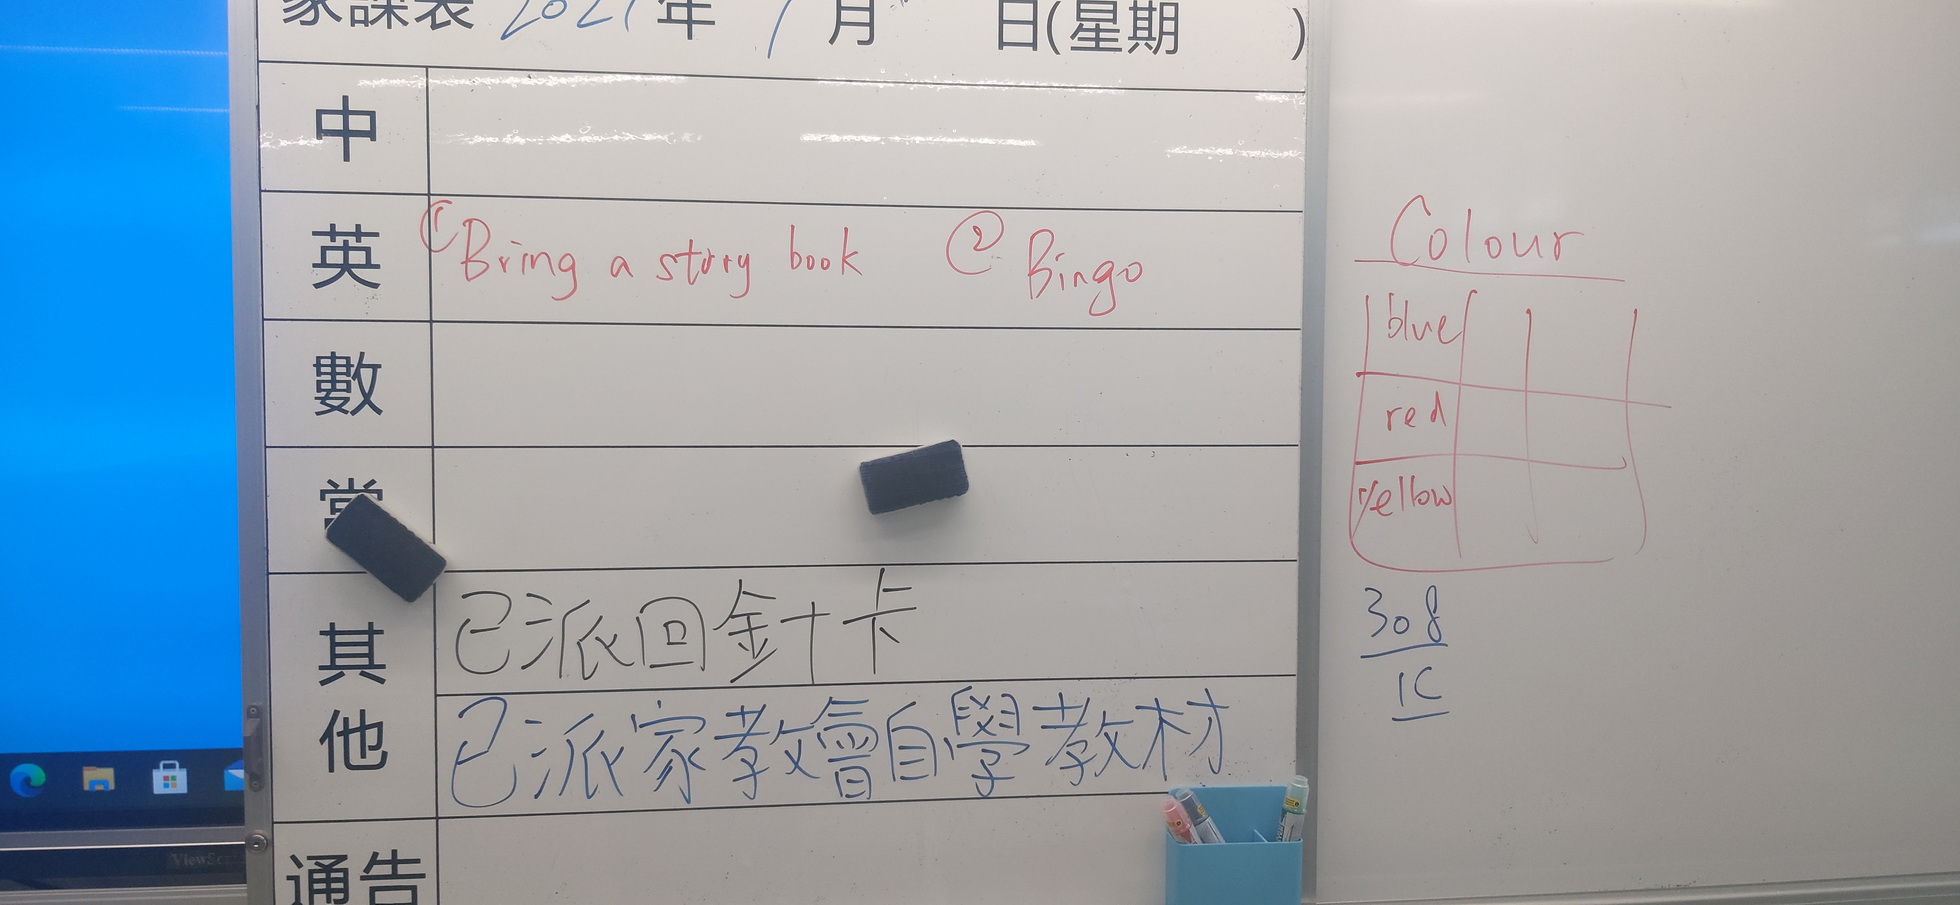 家課表 2021 年 9 月 日(星期 )
中
英 ① Bring a story book ② Bingo
數
常
其他
已派回針卡
已派家教會自學教材
通告
Colour
blue
red
yellow
308
1C